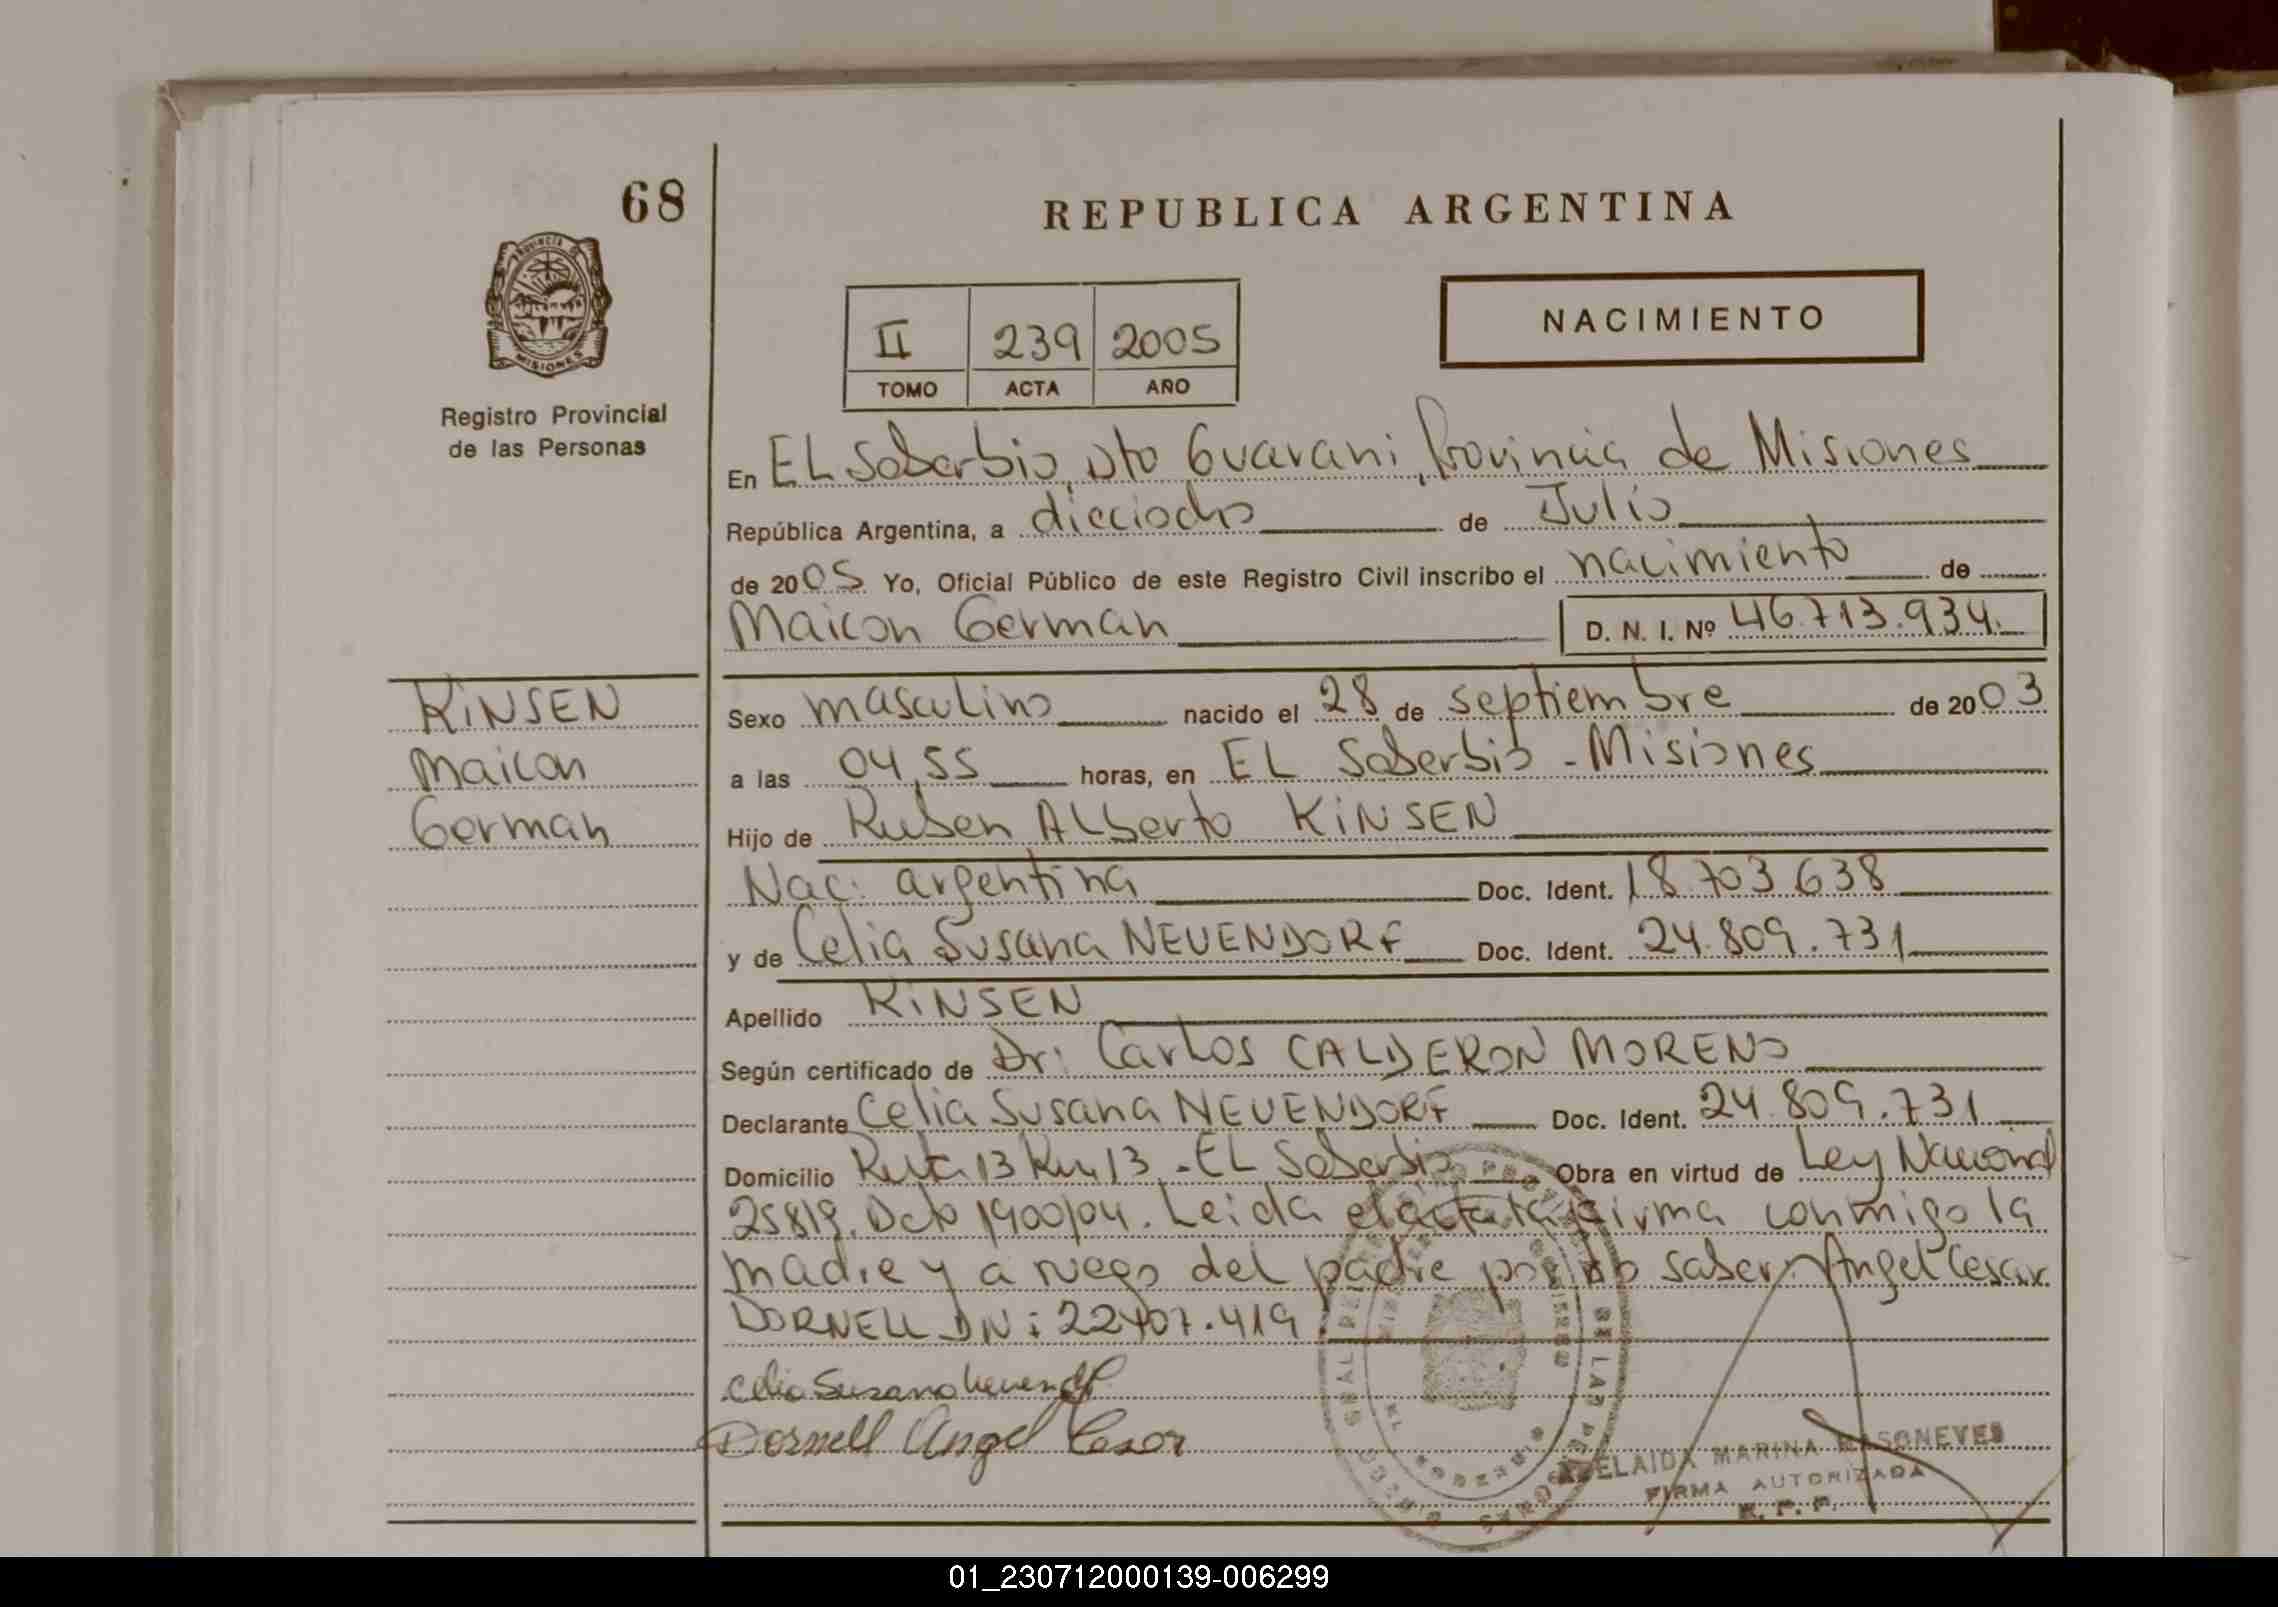 68
REPUBLICA ARGENTINA
PROVINCIA DE
MISIONES
Registro Provincial
de las Personas
II 239 2005
TOMO ACTA AÑO
NACIMIENTO
En EL Soberbio, Dto Guarani, Provincia de Misiones
República Argentina, a dieciocho de Julio
de 2005 Yo, Oficial Público de este Registro Civil inscribo el nacimiento de
Maicon German D. N. I. Nº 46.713.934.
KINSEN
Maicon
German
Sexo masculino nacido el 28 de septiembre de 2003
a las 04,55 horas, en EL Soberbio - Misiones
Hijo de Ruben ALberto KINSEN
Nac: argentina Doc. Ident. 18.703.638
y de Celia Susana NEUENDORF Doc. Ident. 24.809.731
Apellido KINSEN
Según certificado de Dr: Carlos CALDERON MORENO
Declarante Celia Susana NEUENDORF Doc. Ident. 24.809.731
Domicilio Ruta 13 Km 13 - EL Soberbio Obra en virtud de Ley Nacional
25819. Dcto 1900/04. Leida el acta la firma conmigo la
madre y a ruego del padre por no saber: Angel Cesar
DORNELL DN: 22407.419.
Celia Susana Neuendorf
Dornell Angel Cesar
ADELAIDA MARINA MASONEVES
FIRMA AUTORIZADA
R. P. P.
01_230712000139-006299